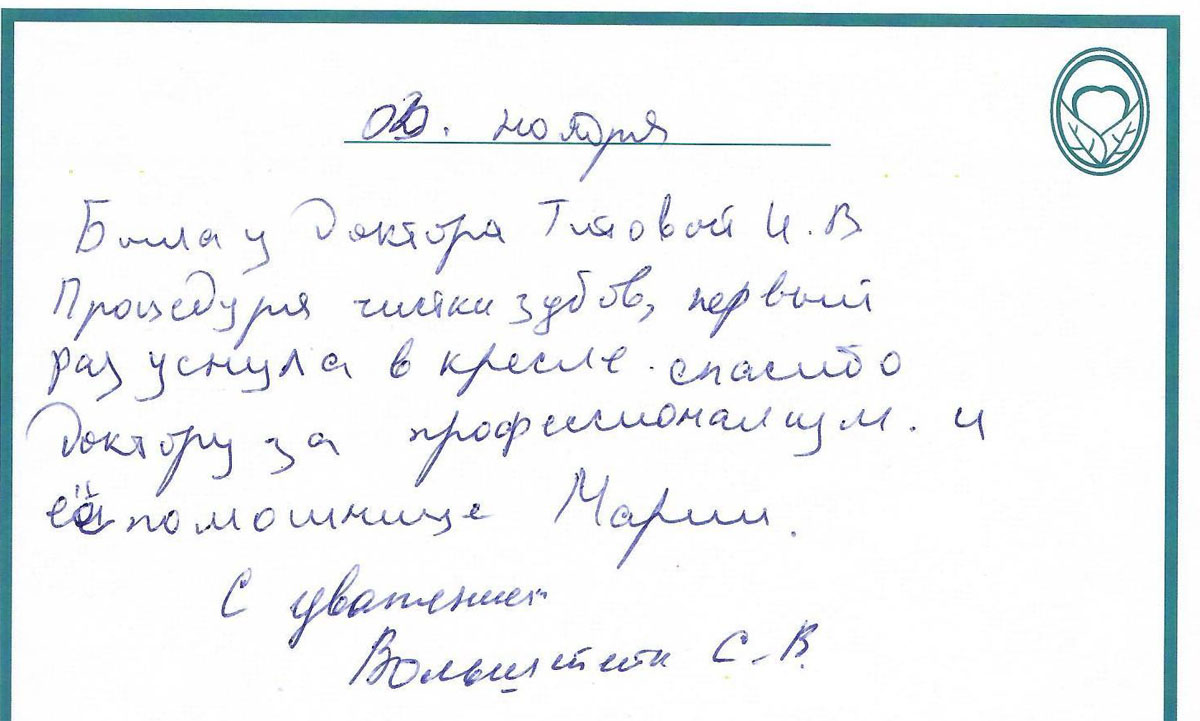 ноября
Была у доктора Титовой И.В
Процедура чистки зубов, первый
раз уснула в кресле. спасибо
доктору за профессионализм. и
её помошнице Марии.
С уважением
С.В.